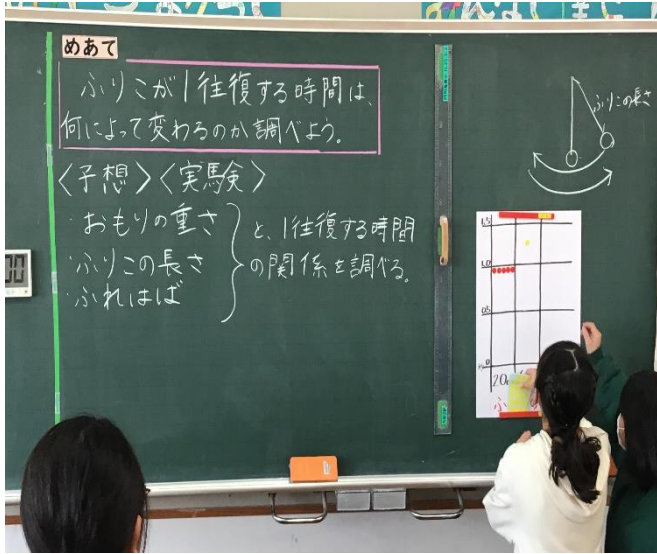 めあて
ふりこが1往復する時間は、
何によって変わるのか調べよう。
〈予想〉〈実験〉
・おもりの重さ
・ふりこの長さ
・ふれはば
と、1往復する時間
の関係を調べる。
ふりこの長さ
1.5
1.0
0.5
20
ふ